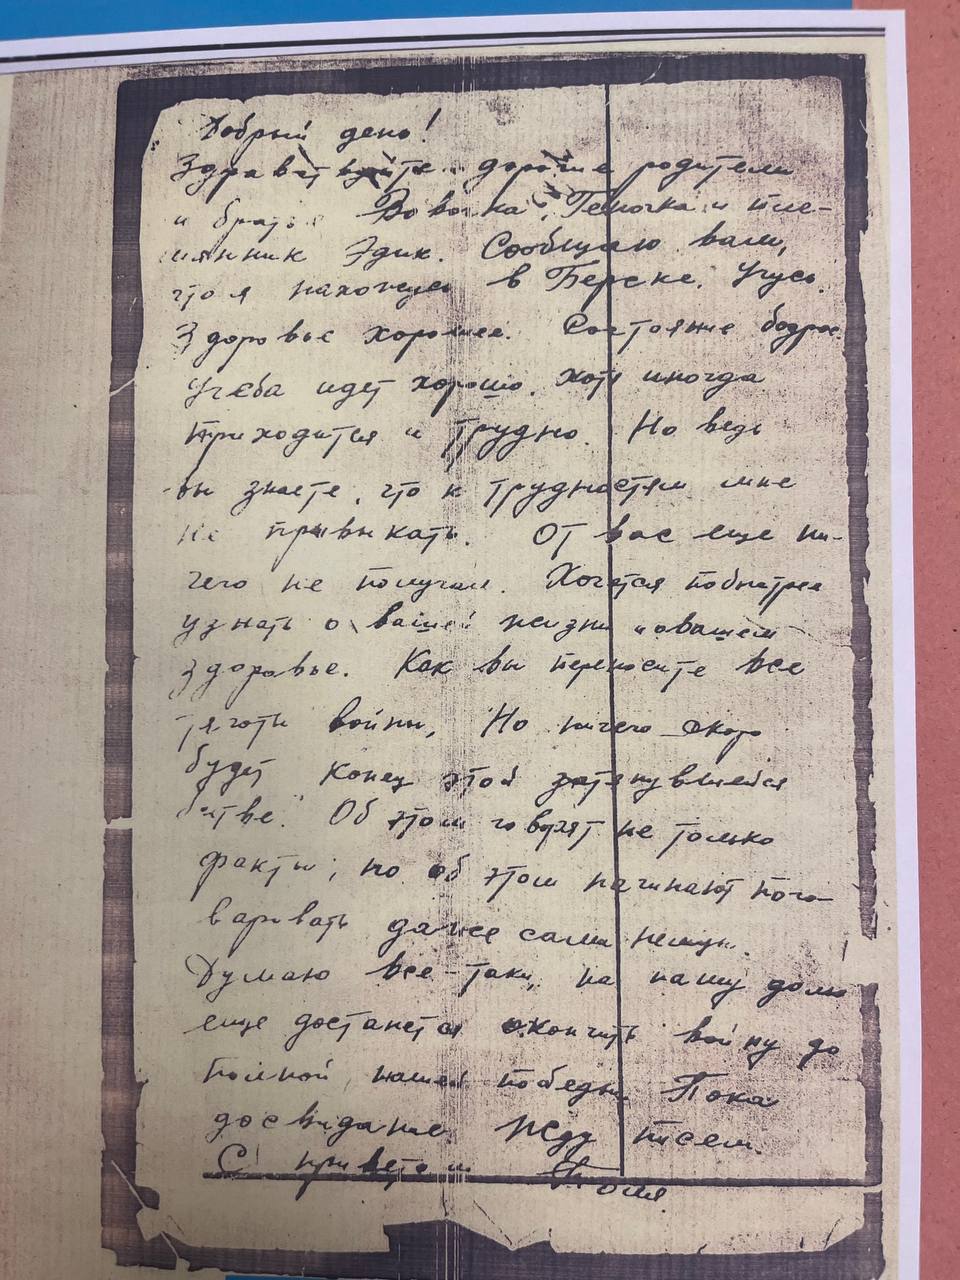 Добрый день!
Здравствуйте дорогие родители
и братья Вовочка, Геночка и пле-
мянник Эдик. Сообщаю вам,
что я нахожусь в Берске. Учусь.
Здоровье хорошее. Состояние бодрое.
Учеба идет хорошо, хотя иногда
приходится и трудно. Но ведь
вы знаете, что к трудностям мне
не привыкать. От вас еще ни-
чего не получил. Хочется побыстрее
узнать о вашей жизни и о вашем
здоровье. Как вы переносите все
тяготы войны, Но ничего скоро
будет конец этой затянувшейся
битве. Об этом говорят не только
факты, но об этом начинают пого-
варивать даже сами немцы.
Думаю все-таки, на нашу долю
еще достанется окончить войну до
полной нашей победы Пока
досвидание Жду писем.
С приветом Толя.